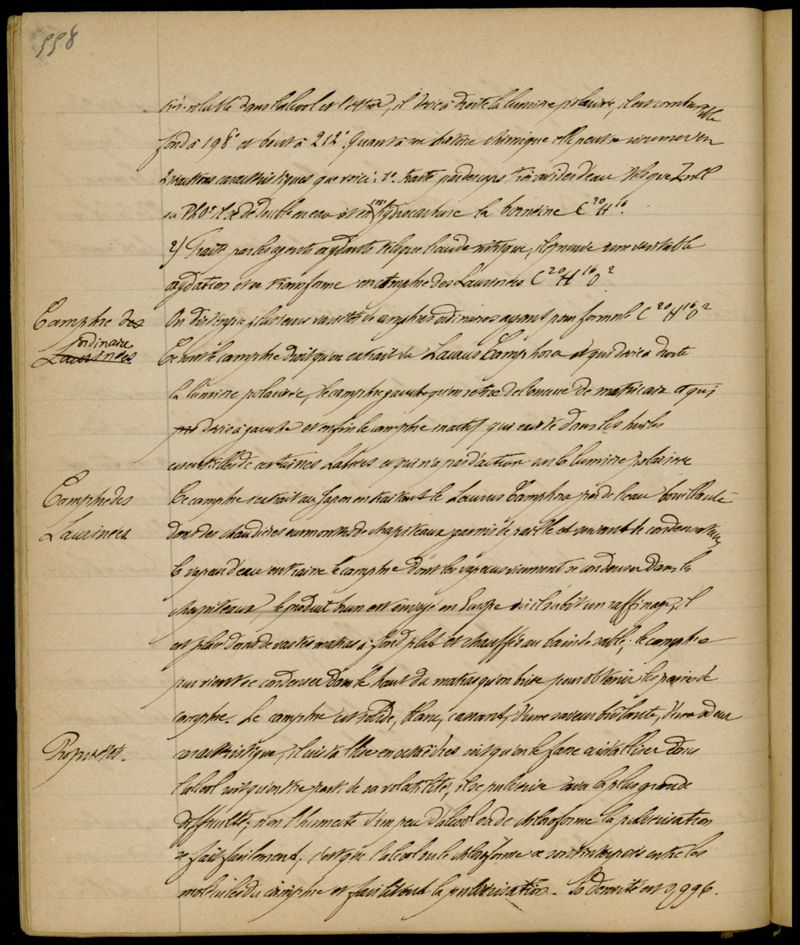 558
très soluble dans l'alcool et l'éther, il dévie à droite la lumière polarisée, il est combustible
fond à 198° et bout à 212°. Quant à sa nature chimique elle peut se résumer en
2 réactions caractéristiques que voici: 1° traité par des corps très avides d'eau tels que ZnCl
ou PhO5 il se dédouble en eau et en un hydrocarbure la bornéine C20H16.
2) Traité par les agents oxydants tels que l'acide nitrique, il éprouve une véritable
oxydation et se transforme en camphre des Laurinées C20H16O2
Camphre des
ordinaire
Laurinées
On distingue plusieurs variétés de camphres ordinaires ayant pour formule C20H16O2
Ce sont le camphre droit qu'on extrait du Laurus Camphora et qui dévie à droite
la lumière polarisée, le camphre gauche qu'on retire de l'essence de matricaire et qui
dévie à gauche et enfin le camphre inactif qui existe dans les huiles
essentielles de certaines Labiées et qui n'a pas d'action sur la lumière polarisée
Camphre des
Laurinées
Le camphre s'extrait au Japon en traitant le Laurus Camphora par de l'eau bouillante
dans des chaudières surmontées de chapiteaux garnis de paille et servant de condensateurs
la vapeur d'eau entraîne le camphre dont les vapeurs viennent se condenser dans les
chapiteaux le produit brun est envoyé en Europe où il subit un raffinage, il
est placé dans de vastes matras à fond plat et chauffés au bain de sable; le camphre
pur vient se condenser dans le haut du matras qu'on brise pour obtenir les pains de
camphre. Le camphre est solide, blanc, cassant, d'une saveur brûlante, d'une odeur
Propriétés.
caractéristique, il cristallise en octaèdres soit qu'on le fasse cristalliser dans
l'alcool soit qu'on tire parti de sa volatilité, il se pulvérise avec la plus grande
difficulté; si on l'humecte d'un peu d'alcool ou de chloroforme la pulvérisation
se fait facilement. c'est que l'alcool ou le chloroforme se sont interposés entre les
molécules du camphre et facilitent la pulvérisation. Sa densité est 0,996.